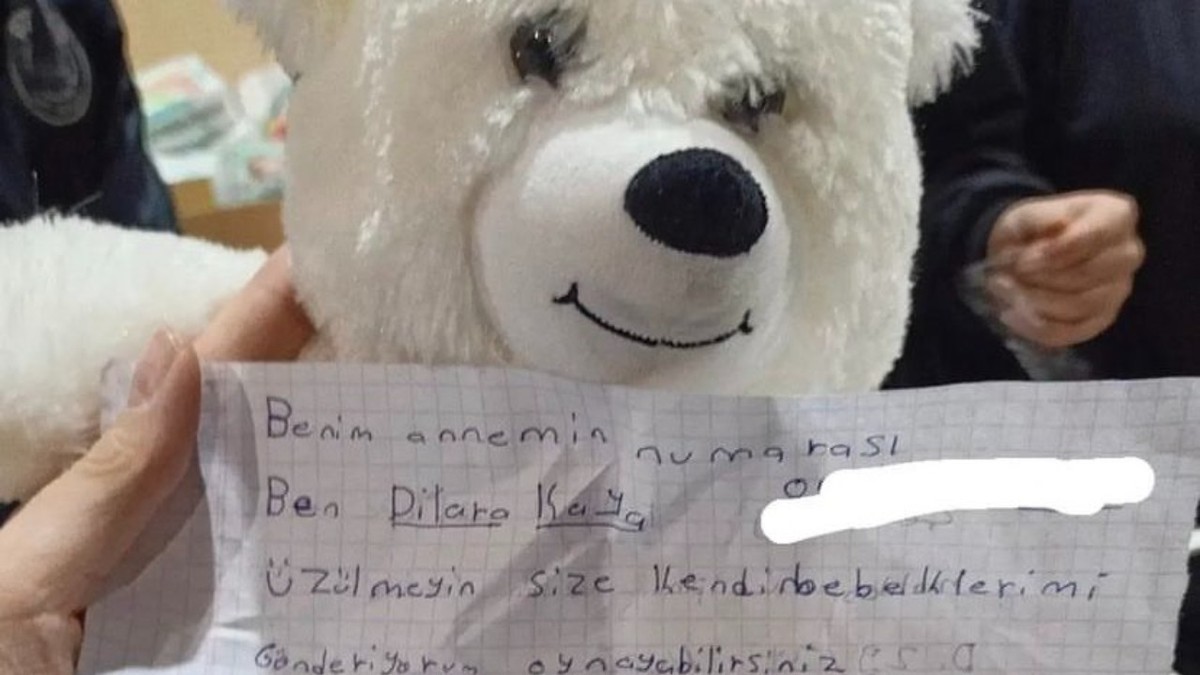 Benim annemin numarası
Ben Dilara Kaya
Üzülmeyin size kendi bebeklerimi
Gönderiyorum oynayabilirsiniz